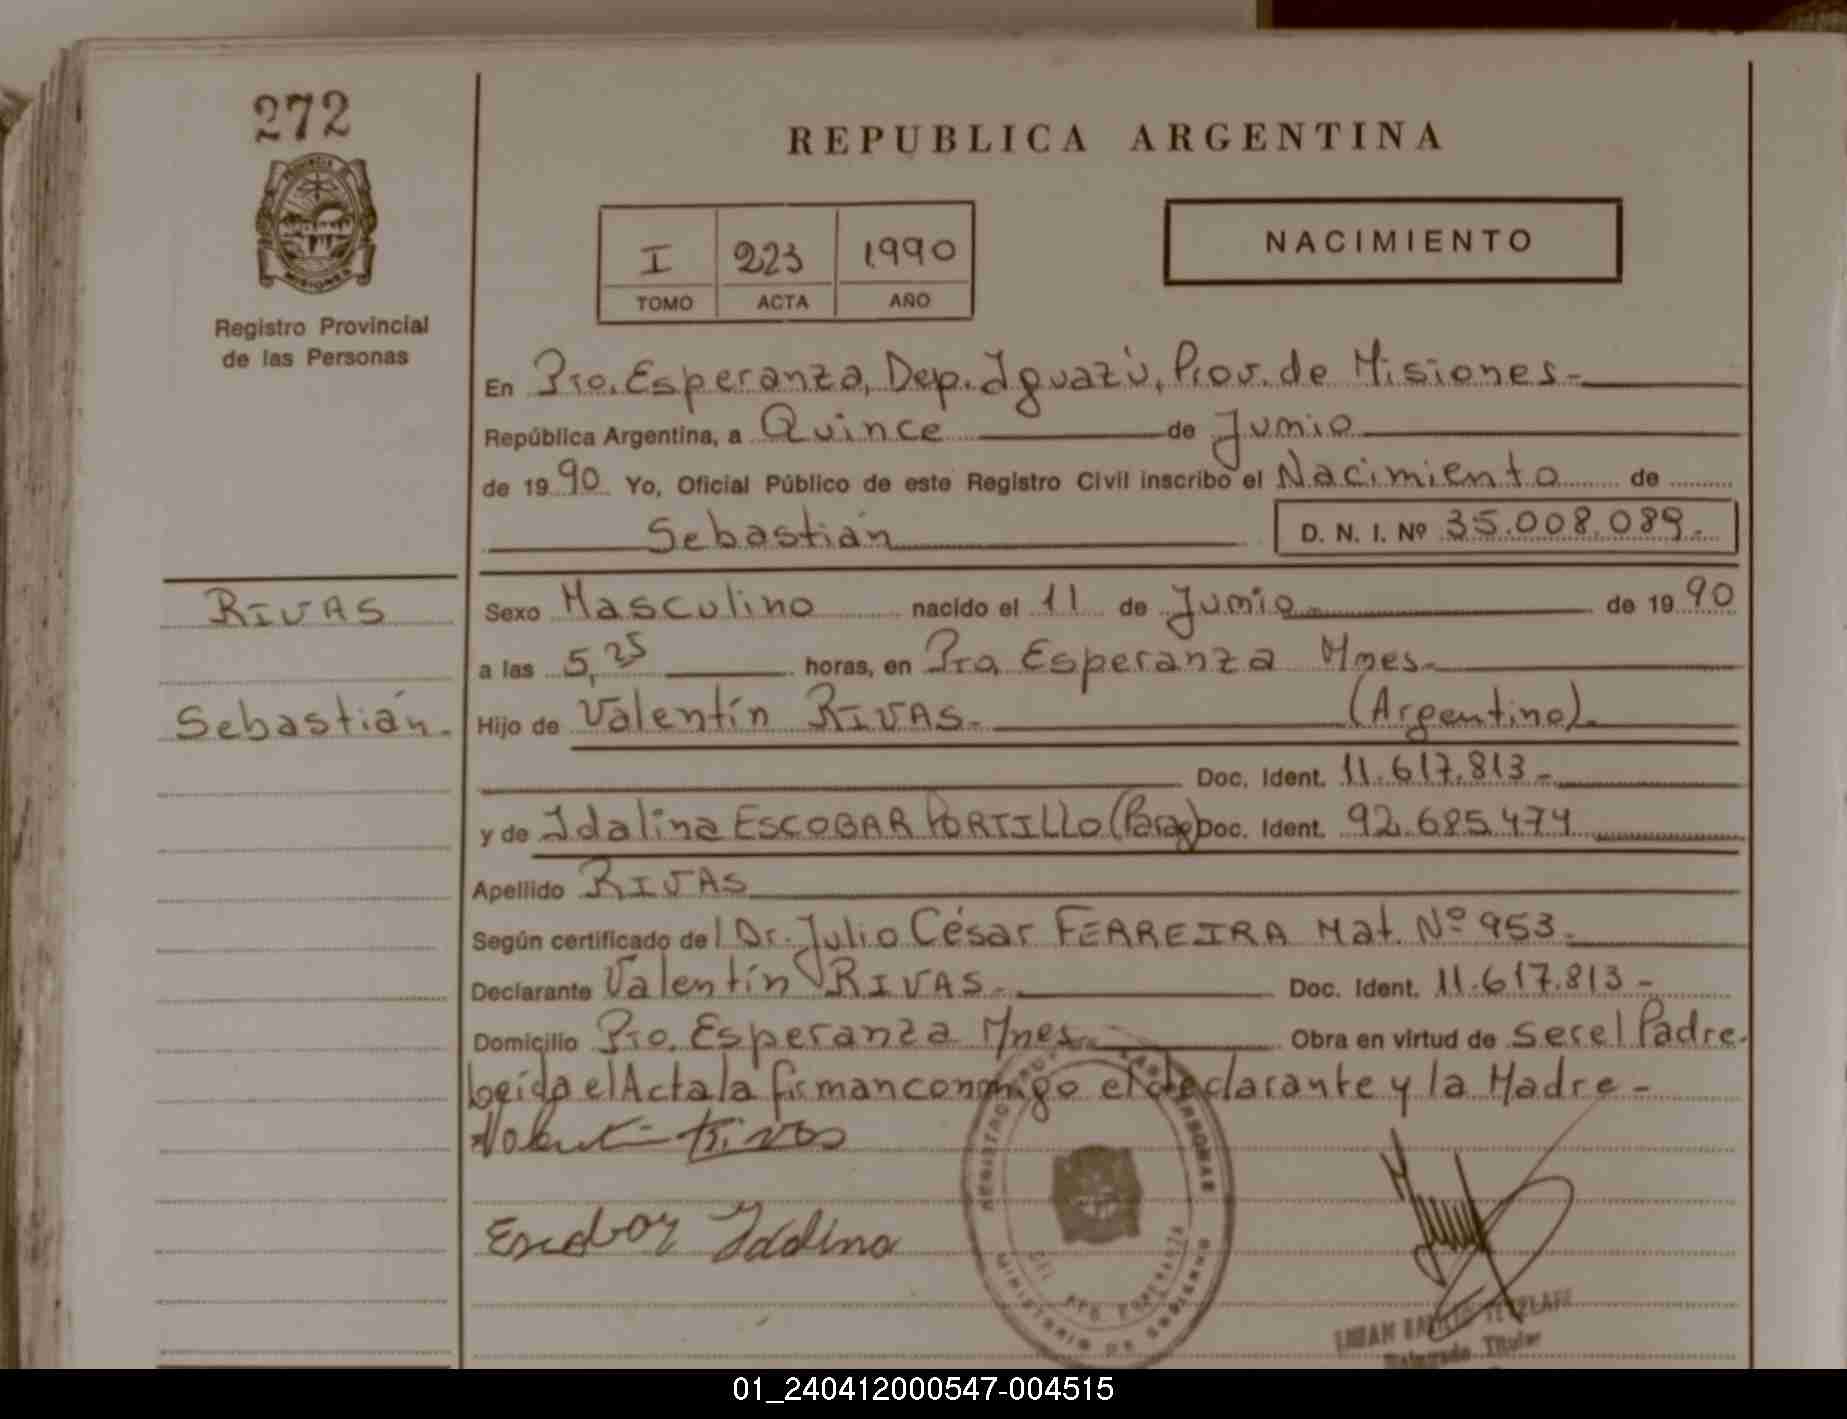 272
PROVINCIA DE
MISIONES
Registro Provincial
de las Personas
REPUBLICA ARGENTINA
I 223 1990
TOMO ACTA AÑO
NACIMIENTO
En Pto. Esperanza, Dep. Iguazú, Prov. de Misiones-
República Argentina, a Quince de Junio
de 1990 Yo, Oficial Público de este Registro Civil inscribo el Nacimiento de
Sebastián D. N. I. Nº 35.008.089.-
RIVAS
Sebastián.-
Sexo Masculino nacido el 11 de Junio de 1990
a las 5,25 horas, en Pto. Esperanza Mnes.-
Hijo de Valentín RIVAS.- (Argentino).-
Doc. Ident. 11.617.813-
y de Idalina ESCOBAR PORTILLO (Parag) Doc. Ident. 92.685.474
Apellido RIVAS
Según certificado del Dr. Julio César FERREIRA Mat. Nº 953.-
Declarante Valentín RIVAS.- Doc. Ident. 11.617.813-
Domicilio Pto. Esperanza Mnes.- Obra en virtud de ser el Padre.
Leída el Acta la firman conmigo el declarante y la Madre-
Rivas
Escobar Idalina
REGISTRO PROV. LAS PERSONAS
PTO. ESPERANZA
MINISTERIO DE GOBIERNO
Delegado Titular
01_240412000547-004515